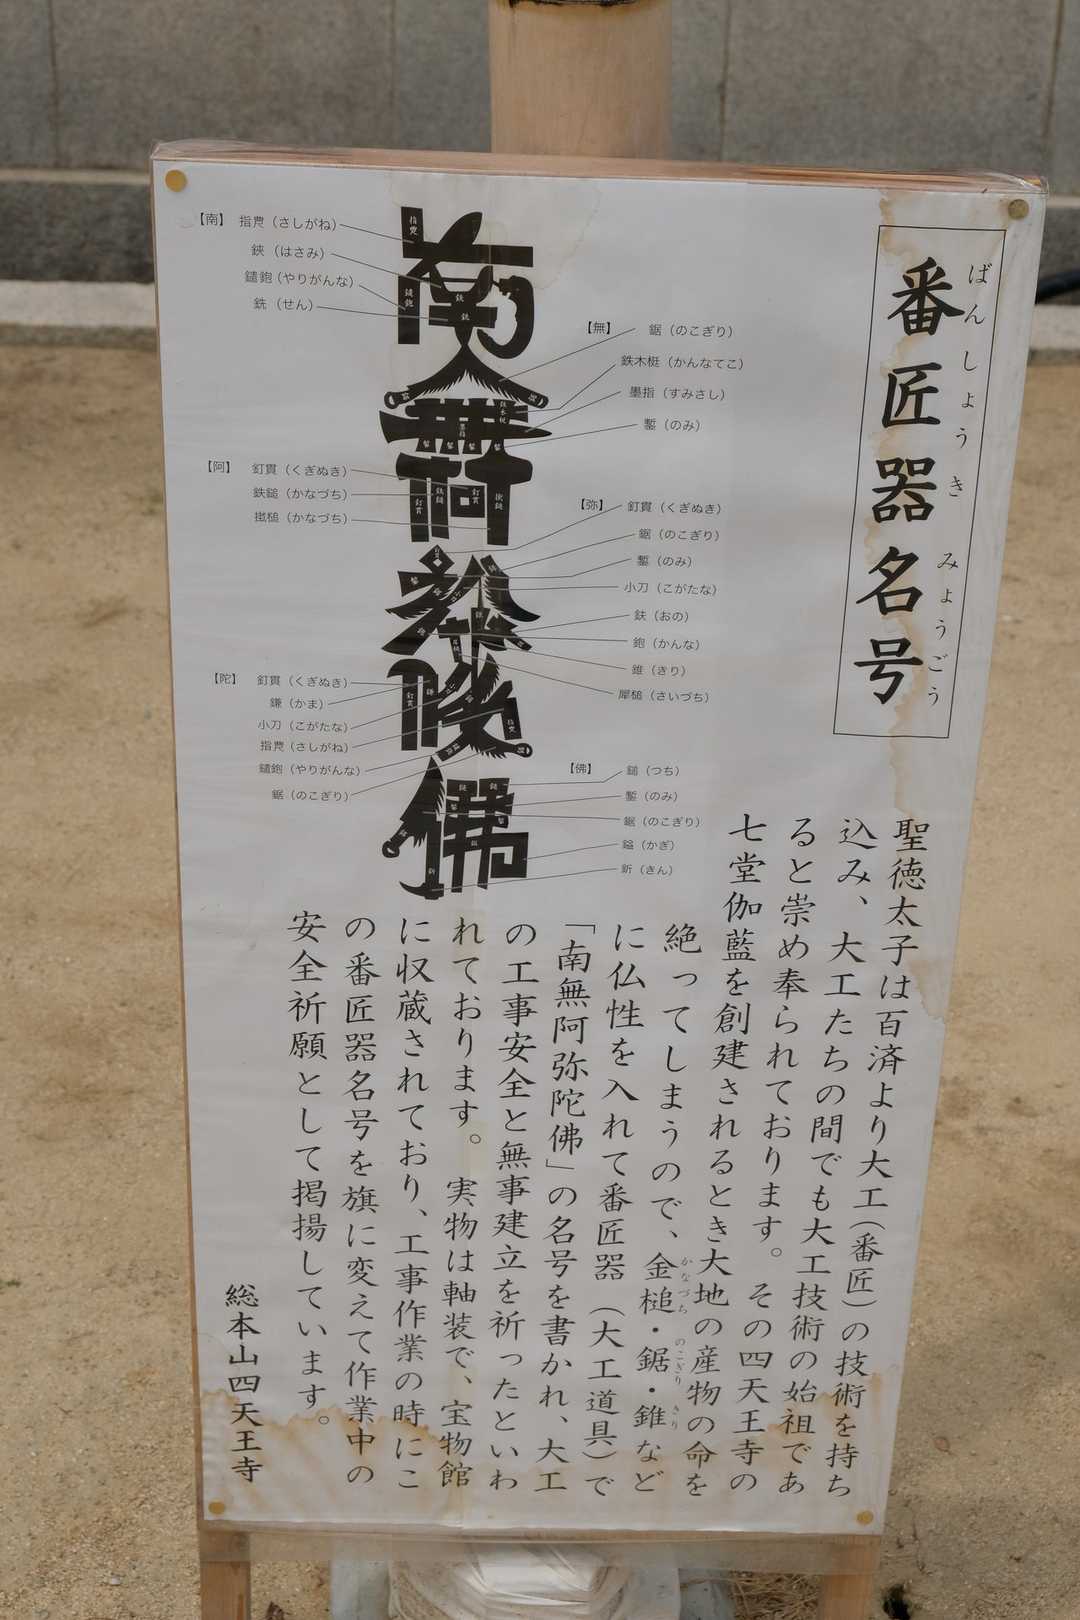 番匠器名号
ばんしょうきみょうごう
【南】 指凳（さしがね）
鋏（はさみ）
鑓鉋（やりがんな）
銑（せん）
【無】 鋸（のこぎり）
鉄木梃（かんなてこ）
墨指（すみさし）
鏨（のみ）
【阿】 釘貫（くぎぬき）
鉄鎚（かなづち）
撳槌（かなづち）
【弥】 釘貫（くぎぬき）
鋸（のこぎり）
鏨（のみ）
小刀（こがたな）
鈇（おの）
鉋（かんな）
錐（きり）
犀槌（さいづち）
【陀】 釘貫（くぎぬき）
鎌（かま）
小刀（こがたな）
指凳（さしがね）
鑓鉋（やりがんな）
鋸（のこぎり）
【佛】 鎚（つち）
鏨（のみ）
鋸（のこぎり）
鎰（かぎ）
釿（きん）
南無阿弥陀佛
聖徳太子は百済より大工（番匠）の技術を持ち
込み、大工たちの間でも大工技術の始祖であ
ると崇め奉られております。その四天王寺の
七堂伽藍を創建されるとき大地の産物の命を
絶ってしまうので、金槌・鋸・錐など
かなづち のこぎり きり
に仏性を入れて番匠器（大工道具）で
「南無阿弥陀佛」の名号を書かれ、大工
の工事安全と無事建立を祈ったといわ
れております。実物は軸装で、宝物館
に収蔵されており、工事作業の時にこ
の番匠器名号を旗に変えて作業中の
安全祈願として掲揚しています。
総本山四天王寺